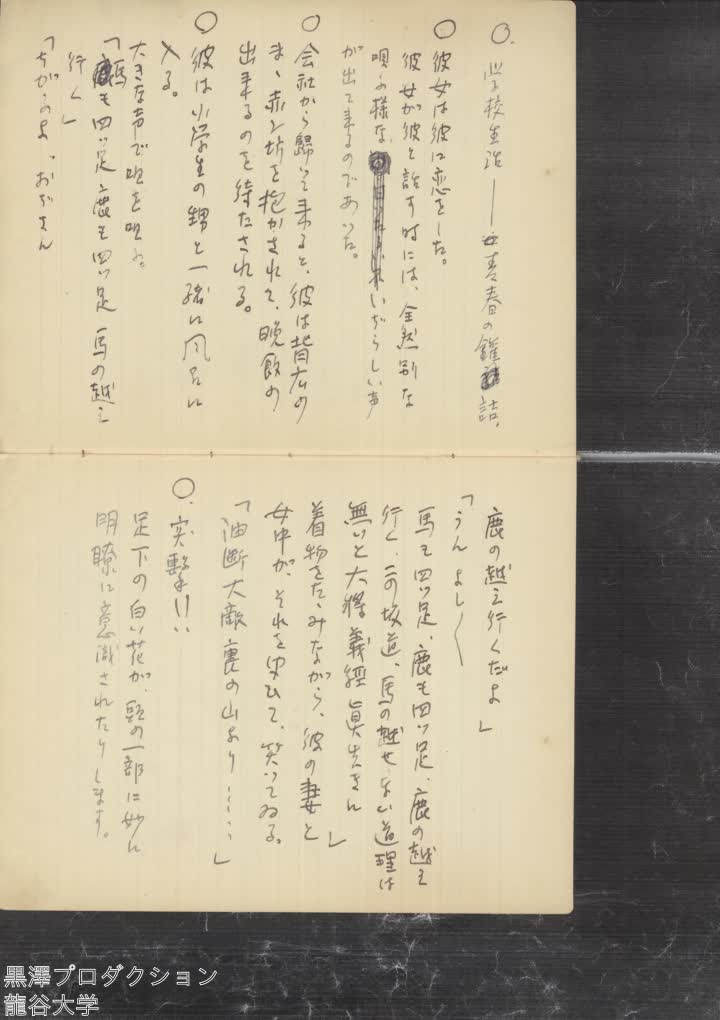 ○. 学校生活——青春の鑵詰.
○ 彼女は彼に恋をした。
彼女が彼と話す時には、全然別な
唄の様な いぢらしい声
が出て来るのであった。
○ 会社から歸って来ると、彼は背広の
まゝ赤ン坊を抱かされて、晩飯の
出来るのを待たされる。
○ 彼は小学生の甥と一緒に風呂に
入る。
大きな声で唄を唄ふ。
「馬も四ッ足 鹿も四ッ足 馬の越え
行く」
「ちがうよ、おぢさん
鹿の越え行くだよ」
「うん よし〱
馬も四ッ足、鹿も四ッ足、鹿の越え
行く、この坂道、馬の越せない道理は
無いと大将義經眞先きに」
着物をたゝみながら、彼の妻と
女中が、それを聞いて、笑ってゐる。
「油断大敵裏の山より……」
○. 突撃!!..
足下の白い花が、頭の一部に妙に
明瞭に意識されたりします。
黒澤プロダクション
龍谷大学